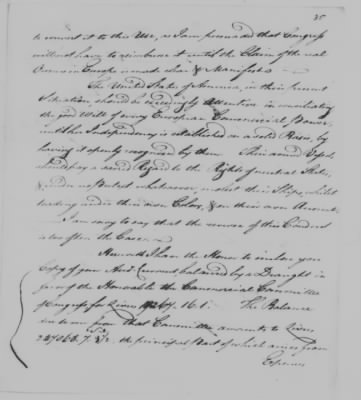 35
to convert it to this Use, as I am persuaded that Congress
will not have to reimburse it until the Claim of the real
Owners in Europe is made clear & Manifest.
The United States of America, in their present
Situation, should be exceedingly Attentive in conciliating
the good Will of every European Commercial Power,
until their Independency is established on a solid Basis, by
having it openly recognized by them. Their armed Vessels
should pay a sacred Regard to the Rights of neutral States,
& under no Pretext whatsoever, molest their Ships, whilst
trading under their own Colors, & on their own Account.
I am sorry to say that the reverse of this Conduct
is too often the Case.
Herewith I have the Honor to inclose you
Copy of your Acct Current balanced by a Draught in
favor of the Honorable the Commercial Committee
of Congress for Livres 16.1. The Balance
due to me from that Committee amounts to Livres
the principal Part of which arises from
Expences